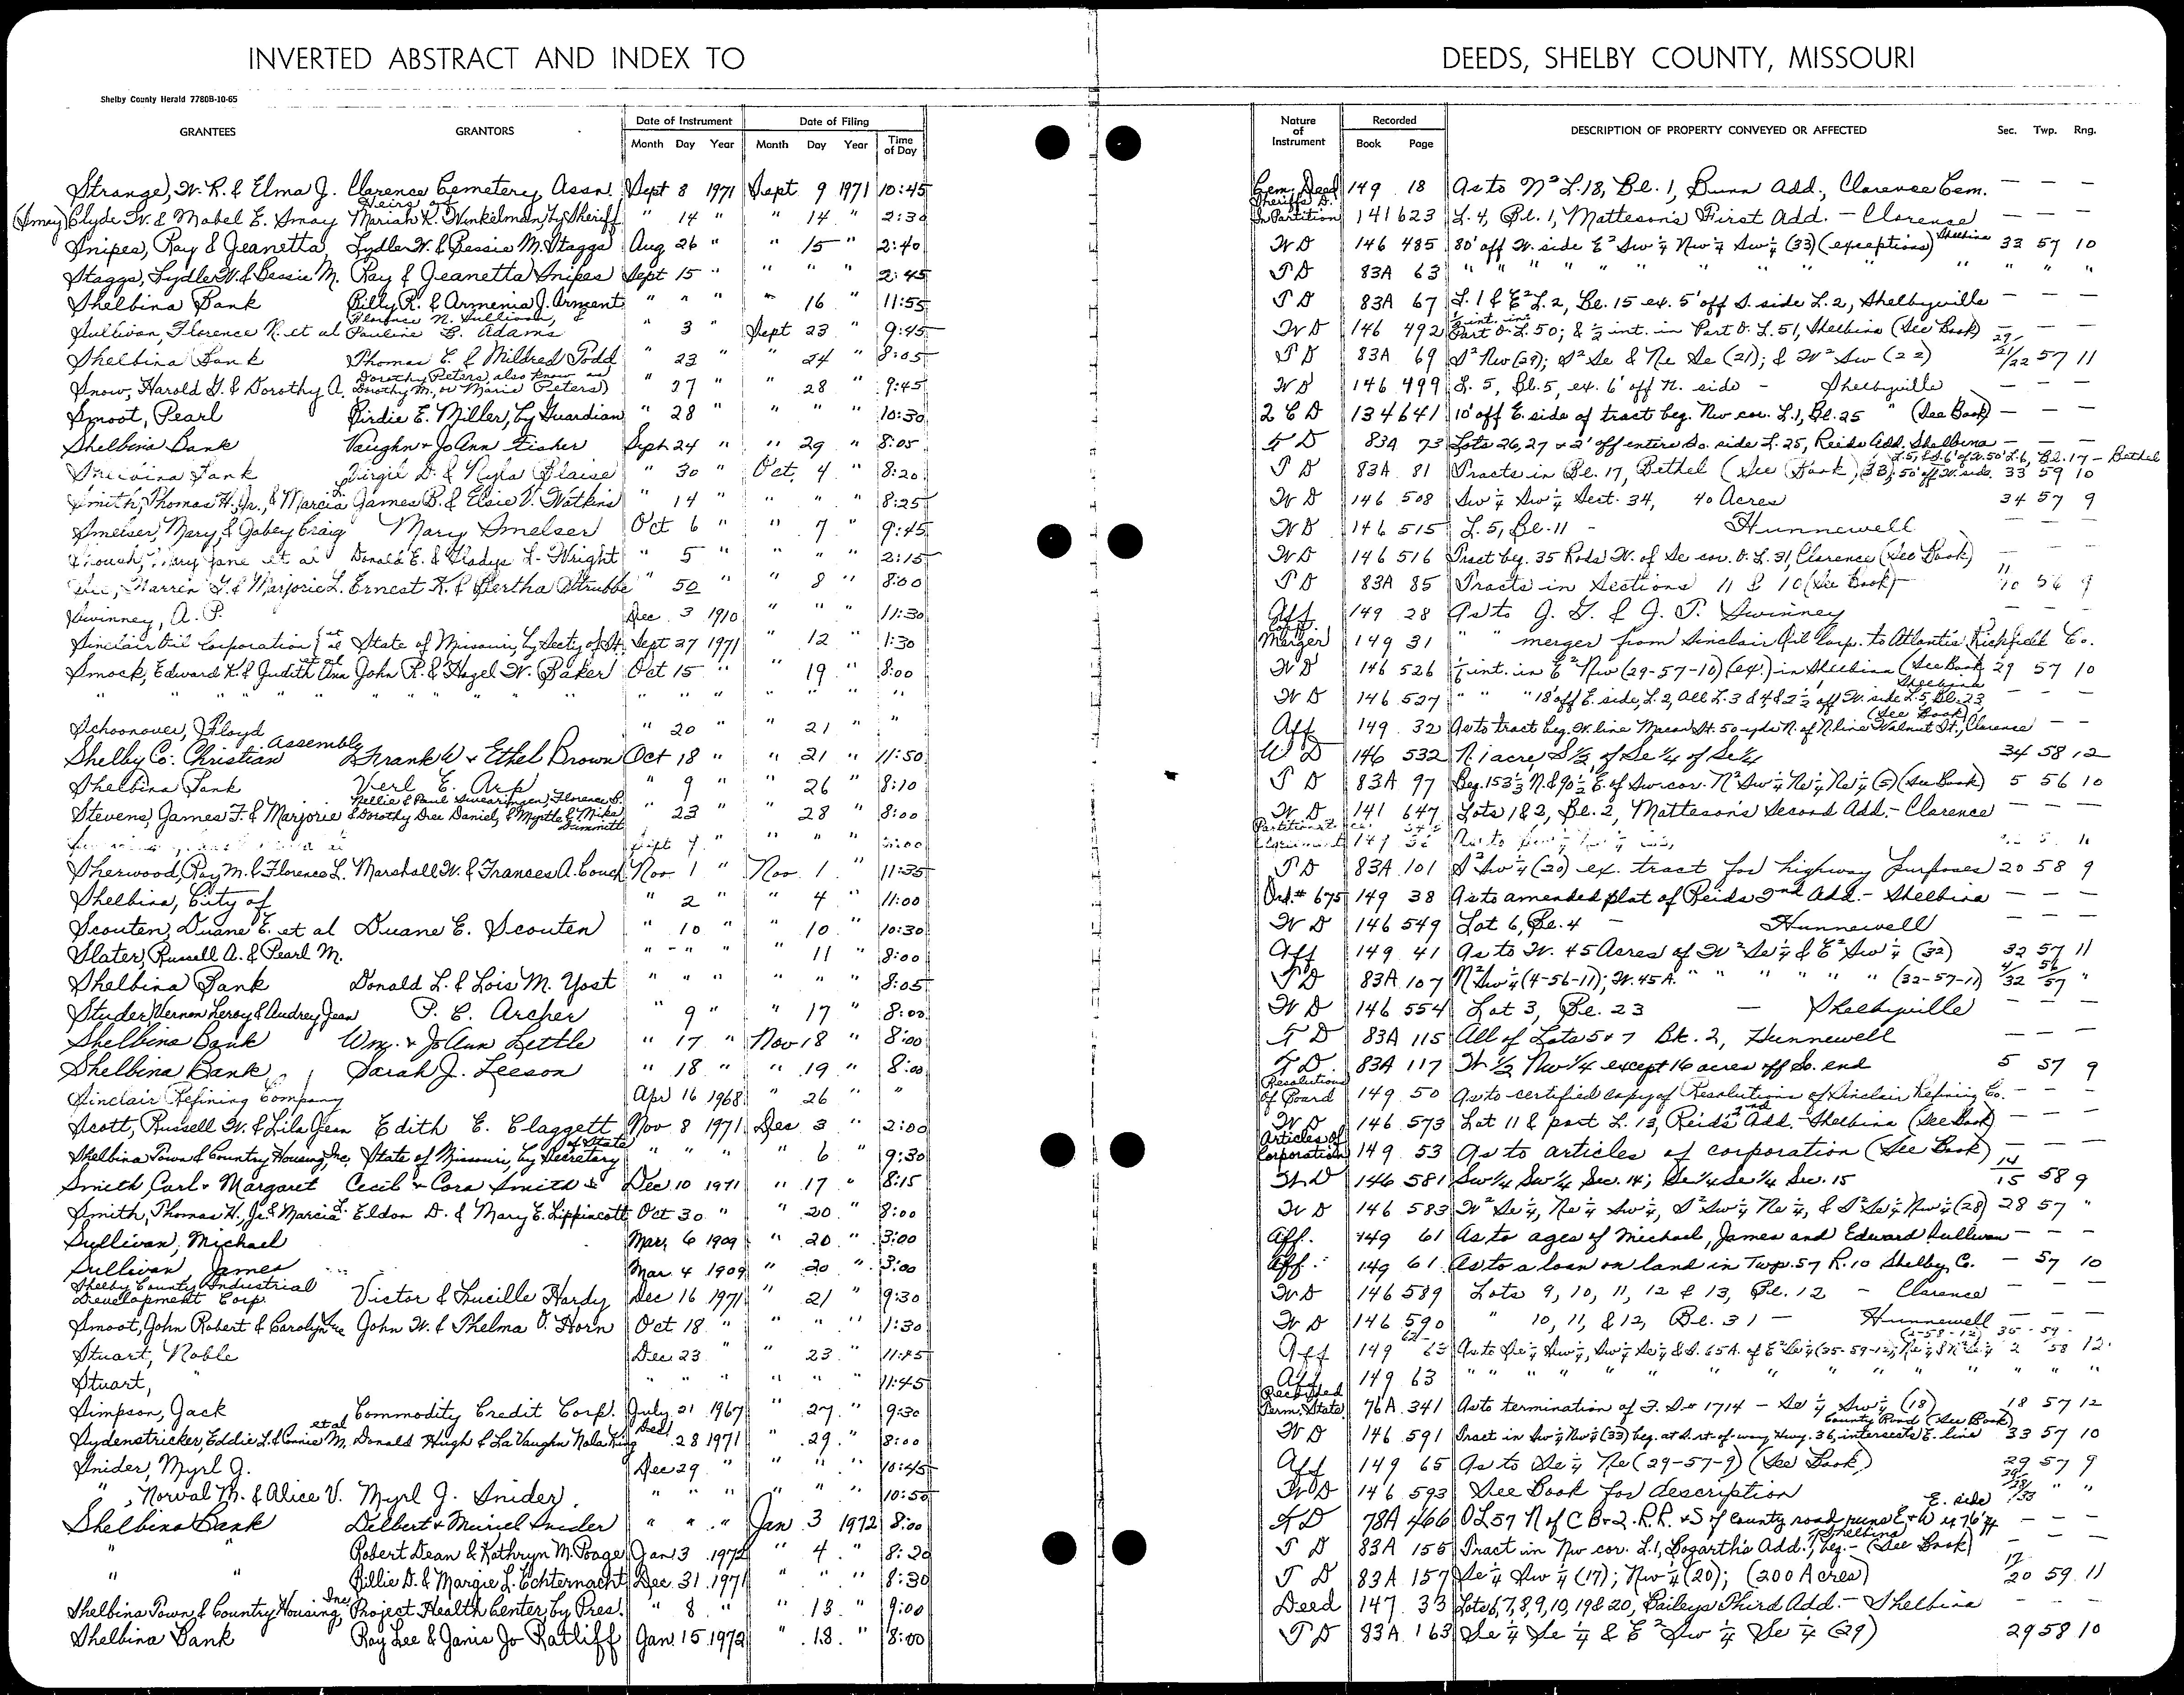 INVERTED ABSTRACT AND INDEX TO DEEDS, SHELBY COUNTY, MISSOURI
Shelby County Herald 7780B-10-65
GRANTEES GRANTORS Date of Instrument Month Day Year Date of Filing Month Day Year Time of Day Nature of Instrument Recorded Book Page DESCRIPTION OF PROPERTY CONVEYED OR AFFECTED Sec. Twp. Rng.
Strange, W. R. & Elma J. Clarence Cemetery Assn. Sept 8 1971 Sept 9 1971 10:45 Cem. Deed 149 18 As to N² L.18, Bl. 1, Bunn Add., Clarence Cem. — — —
(Amay) Clyde W. & Mabel E. Amay Heirs of Mariah K. Winkelman, by Sheriff " 14 " " 14 " 2:30 Sheriffs D. In Partition 141 623 L. 4, Bl. 1, Matteson's First Add. - Clarence — — —
Snipes, Ray & Jeanetta Lydler W. & Bessie M. Staggs Aug 26 " " 15 " 2:40 W D 146 485 80' off W. side E² Sw ¼ Nw ¼ Sw ¼ (33) (exceptions) Shelbina 33 57 10
Staggs, Lydler W. & Bessie M. Ray & Jeanetta Snipes Sept 15 " " " " 2:45 T D 83A 63 " " " " " " " " " " "
Shelbina Bank Billy R. & Armenia J. Arment " " " " 16 " 11:55 T D 83A 67 L. 1 & E² L. 2, Bl. 15 ex. 5' off S. side L. 2, Shelbyville — — —
Sullivan, Florence N. et al Florence N. Sullivan, & Pauline B. Adams " 3 " Sept 23 " 9:45 W D 146 492 ½ int. in Part O. L. 50; & ½ int. in Part O. L. 51, Shelbina (See Book) — — —
Shelbina Bank Thomas E. & Mildred Todd " 23 " " 24 " 8:05 T D 83A 69 S² Nw (29); S² Se & Ne Se (21); & W² Sw (22) 29/21/22 57 11
Snow, Harold G. & Dorothy A. Dorothy Peters also know as Dorothy M. or Marie Peters) " 27 " " 28 " 9:45 W D 146 499 L. 5, Bl. 5, ex. 6' off N. side - Shelbyville — — —
Smoot, Pearl Birdie E. Miller, by Guardian " 28 " " " " 10:30 2 C D 134 641 10' off E. side of tract beg. Nw cor. L. 1, Bl. 25 " (See Book) — — —
Shelbina Bank Vaughn + JoAnn Fisher Sept 24 " " 29 " 8:05 T D 83A 73 Lots 26, 27 + 2' off entire So. side L. 25, Reids Add. Shelbina — — —
Shelbina Bank Virgil D. & Nyla Blaise " 30 " Oct. 4 " 8:20 T D 83A 81 Tracts in Bl. 17, Bethel (See Book) 33 59 10
Smith, Thomas H. Jr., & Marcia L. James B. & Elsie V. Watkins " 14 " " " " 8:25 W D 146 508 Sw ¼ Sw ¼ Sect. 34, 40 Acres 34 57 9
Smelser, Mary, & Gabey Craig Mary Smelser Oct 6 " " 7 " 9:45 W D 146 515 L. 5, Bl. 11 - Hunnewell — — —
Mary Jane et al Donald E. & Gladys L. Wright " 5 " " " " 2:15 W D 146 516 Tract beg. 35 Rods W. of Se cor. O. L. 31, Clarence (See Book) — — —
Warren G. & Marjorie L. Ernest K. & Bertha Strubbe " 50 " " 8 " 8:00 T D 83A 85 Tracts in Sections 11 & 10 (See Book) 11/10 56 9
Swinney, A. P. Dec. 3 1910 " " " 11:30 Aff 149 28 As to J. G. & J. T. Swinney — — —
Sinclair Oil Corporation (et al State of Missouri, by Secty of St. Sept 27 1971 " 12 " 1:30 Cert. Merger 149 31 " " merger from Sinclair Oil Corp. to Atlantic Richfield Co.
Smock, Edward K. & Judith Ann et al John R. & Hazel W. Baker Oct 15 " " 19 " 8:00 W D 146 526 ½ int. in E² Nw (29-57-10) (ex.) in Shelbina (See Book) 29 57 10
" " " " " " " " " " " " W D 146 527 " " " 18' off E. side, L. 2, all L. 3 & 4 & 2½' off W. side L. 5, Bl. 23, Shelbina — — —
Schoonover, Floyd " 20 " " 21 " " Aff 149 32 As to tract beg. W. line Macon St. 50 yds N. of N. line Walnut St., Clarence (See Book) — —
Shelby Co. Christian Assembly Frank W + Ethel Brown Oct 18 " " 21 " 11:50 W D 146 532 N. 1 acre, S½ of Se ¼ of Se ¼ 34 58 12
Shelbina Bank Verl E. Arp " 9 " " 26 " 8:10 T D 83A 97 Beg. 153⅓ N. & 90½ E. of Sw. cor. N² Sw ¼ Ne ¼ Ne ¼ (5) (See Book) 5 56 10
Stevens, James F. & Marjorie Nellie & Paul Swearingen, Florence B. & Dorothy Dee Daniel, & Myrtle & Mike Dummitt " 23 " " 28 " 8:00 W D 141 647 Lots 1 & 2, Bl. 2, Matteson's Second Add. - Clarence — — —
Sherwood, Ray M. & Florence L. Marshall W. & Frances A. Couch Nov 1 " Nov. 1 " 11:35 T D 83A 101 S² Sw ¼ (20) ex. tract for highway purposes 20 58 9
Shelbina, City of " 2 " " 4 " 11:00 Ord. # 675 149 38 As to amended plat of Reids 2nd Add. - Shelbina — — —
Scouten, Duane E. et al Duane E. Scouten " 10 " " 10 " 10:30 W D 146 549 Lot 6, Bl. 4 - Hunnewell — — —
Slater, Russell A. & Pearl M. " " " " 11 " 8:00 Aff 149 41 As to W. 45 Acres of W² Se ¼ & E² Sw ¼ (32) 32 57 11
Shelbina Bank Donald L. & Lois M. Yost " " " " " " 8:05 T D 83A 107 N² Sw ¼ (4-56-11); W. 45 A. " " " " " (32-57-11) 4/32 56/57 "
Studer, Vernon Leroy & Audrey Jean P. C. Archer " 9 " " 17 " 8:00 W D 146 554 Lot 3, Bl. 23 — Shelbyville — — —
Shelbina Bank Wm. + JoAnn Lettle " 17 " Nov 18 " 8:00 T D 83A 115 All of Lots 5 + 7 Bk. 2, Hunnewell — — —
Shelbina Bank Sarah J. Leeson " 18 " " 19 " 8:00 T D. 83A 117 W ½ Nw ¼ except 16 acres off So. end 5 57 9
Sinclair Refining Company Apr 16 1968 " 26 " " Resolutions of Board 149 50 As to certified copy of Resolutions of Sinclair Refining Co. — — —
Scott, Russell W. & Lila Jean Edith E. Claggett Nov 8 1971 Dec 3 " 2:00 W D 146 573 Lot 11 & part L. 13, Reids 2nd Add. - Shelbina (See Book) — — —
Shelbina Town & Country Housing, Inc. State of Missouri, by Secretary of State " " " " 6 " 9:30 Articles of Corporation 149 53 As to articles of corporation (See Book) — — —
Smith, Carl + Margaret Cecil + Cora Smith Dec 10 1971 " 17 " 8:15 W D 146 581 Sw ¼ Sw ¼ Sec. 14; Se ¼ Se ¼ Sec. 15 14/15 58 9
Smith, Thomas H., Jr. & Marcia L. Eldon D. & Mary E. Lippincott Oct 30 " " 20 " 8:00 W D 146 583 W² Se ¼, Ne ¼ Sw ¼, S² Sw ¼ Ne ¼, & S² Se ¼ Nw ¼ (28) 28 57 "
Sullivan, Michael Mar. 6 1909 " 20 " 3:00 Aff. 149 61 As to ages of Michael, James and Edward Sullivan — — —
Sullivan James Mar. 4 1909 " 20 " 3:00 Aff. 149 61 As to a loan on land in Twp. 57 R. 10 Shelby Co. — 57 10
Shelby County Industrial Development Corp. Victor & Lucille Hardy Dec 16 1971 " 21 " 9:30 W D 146 589 Lots 9, 10, 11, 12 & 13, Bl. 12 - Clarence — — —
Smoot, John Robert & Carolyn Sue John W. & Thelma O. Horn Oct 18 " " " " 1:30 W D 146 590 " 10, 11, & 12, Bl. 31 — Hunnewell — — —
Stuart, Noble Dec 23 " " 23 " 11:45 Aff 149 63 As to Se ¼ Sw ¼, Sw ¼ Se ¼ & S. 65 A. of E² Se ¼ (35-59-12); (2-58-12) 35 59 2 58 12
Stuart, " " " " " " " 11:45 Aff 149 63 " " " " " " " " " "
Simpson, Jack Commodity Credit Corp. July 21 1967 " 27 " 9:30 Rectified Term. State. 76A 341 As to termination of F. S # 1714 - Se ¼ Sw ¼ (18) 18 57 12
Sydenstricker, Eddie L. & Connie M. et al Donald Hugh & LaVaughn Nola King Dec 28 1971 " 29 " 8:00 W D 146 591 Tract in Sw ¼ Nw ¼ (33) beg. at S. rt-of-way Hwy. 36, intersects E. line County Road (See Book) 33 57 10
Snider, Myrl J. Dec 29 " " " " 10:45 Aff 149 65 As to Se ¼ Ne (29-57-9) (See Book) 29 57 9
" , Norval M. & Alice V. Myrl J. Snider " " " " " " 10:50 W D 146 593 See Book for description 29/28/33 " "
Shelbina Bank Delbert + Muriel Snider " " " Jan 3 1972 8:00 T D 78A 466 OL 57 N of C B + Q. R. R. + S of county road runs E + W ex 76' off E. side — — —
" " Robert Dean & Kathryn M. Poage Jan 3 1972 " 4 " 8:20 T D 83A 155 Tract in Nw cor. L. 1, Bogarth's Add., Shelbina, beg. - (See Book) — — —
" " Billie D. & Margie L. Echternacht Dec. 31 1971 " " " 8:30 T D 83A 157 Se ¼ Sw ¼ (17); Nw ¼ (20); (200 Acres) 17/20 59 11
Shelbina Town & Country Housing, Inc. Project Health Center, by Pres. " 8 " " 13 " 9:00 Deed 147 33 Lots 6, 7, 8, 9, 10, 19 & 20, Baileys Third Add. - Shelbina — — —
Shelbina Bank Ray Lee & Janis Jo Ratliff Jan 15 1972 " 18 " 8:00 T D 83A 163 Se ¼ Se ¼ & E² Sw ¼ Se ¼ (29) 29 58 10